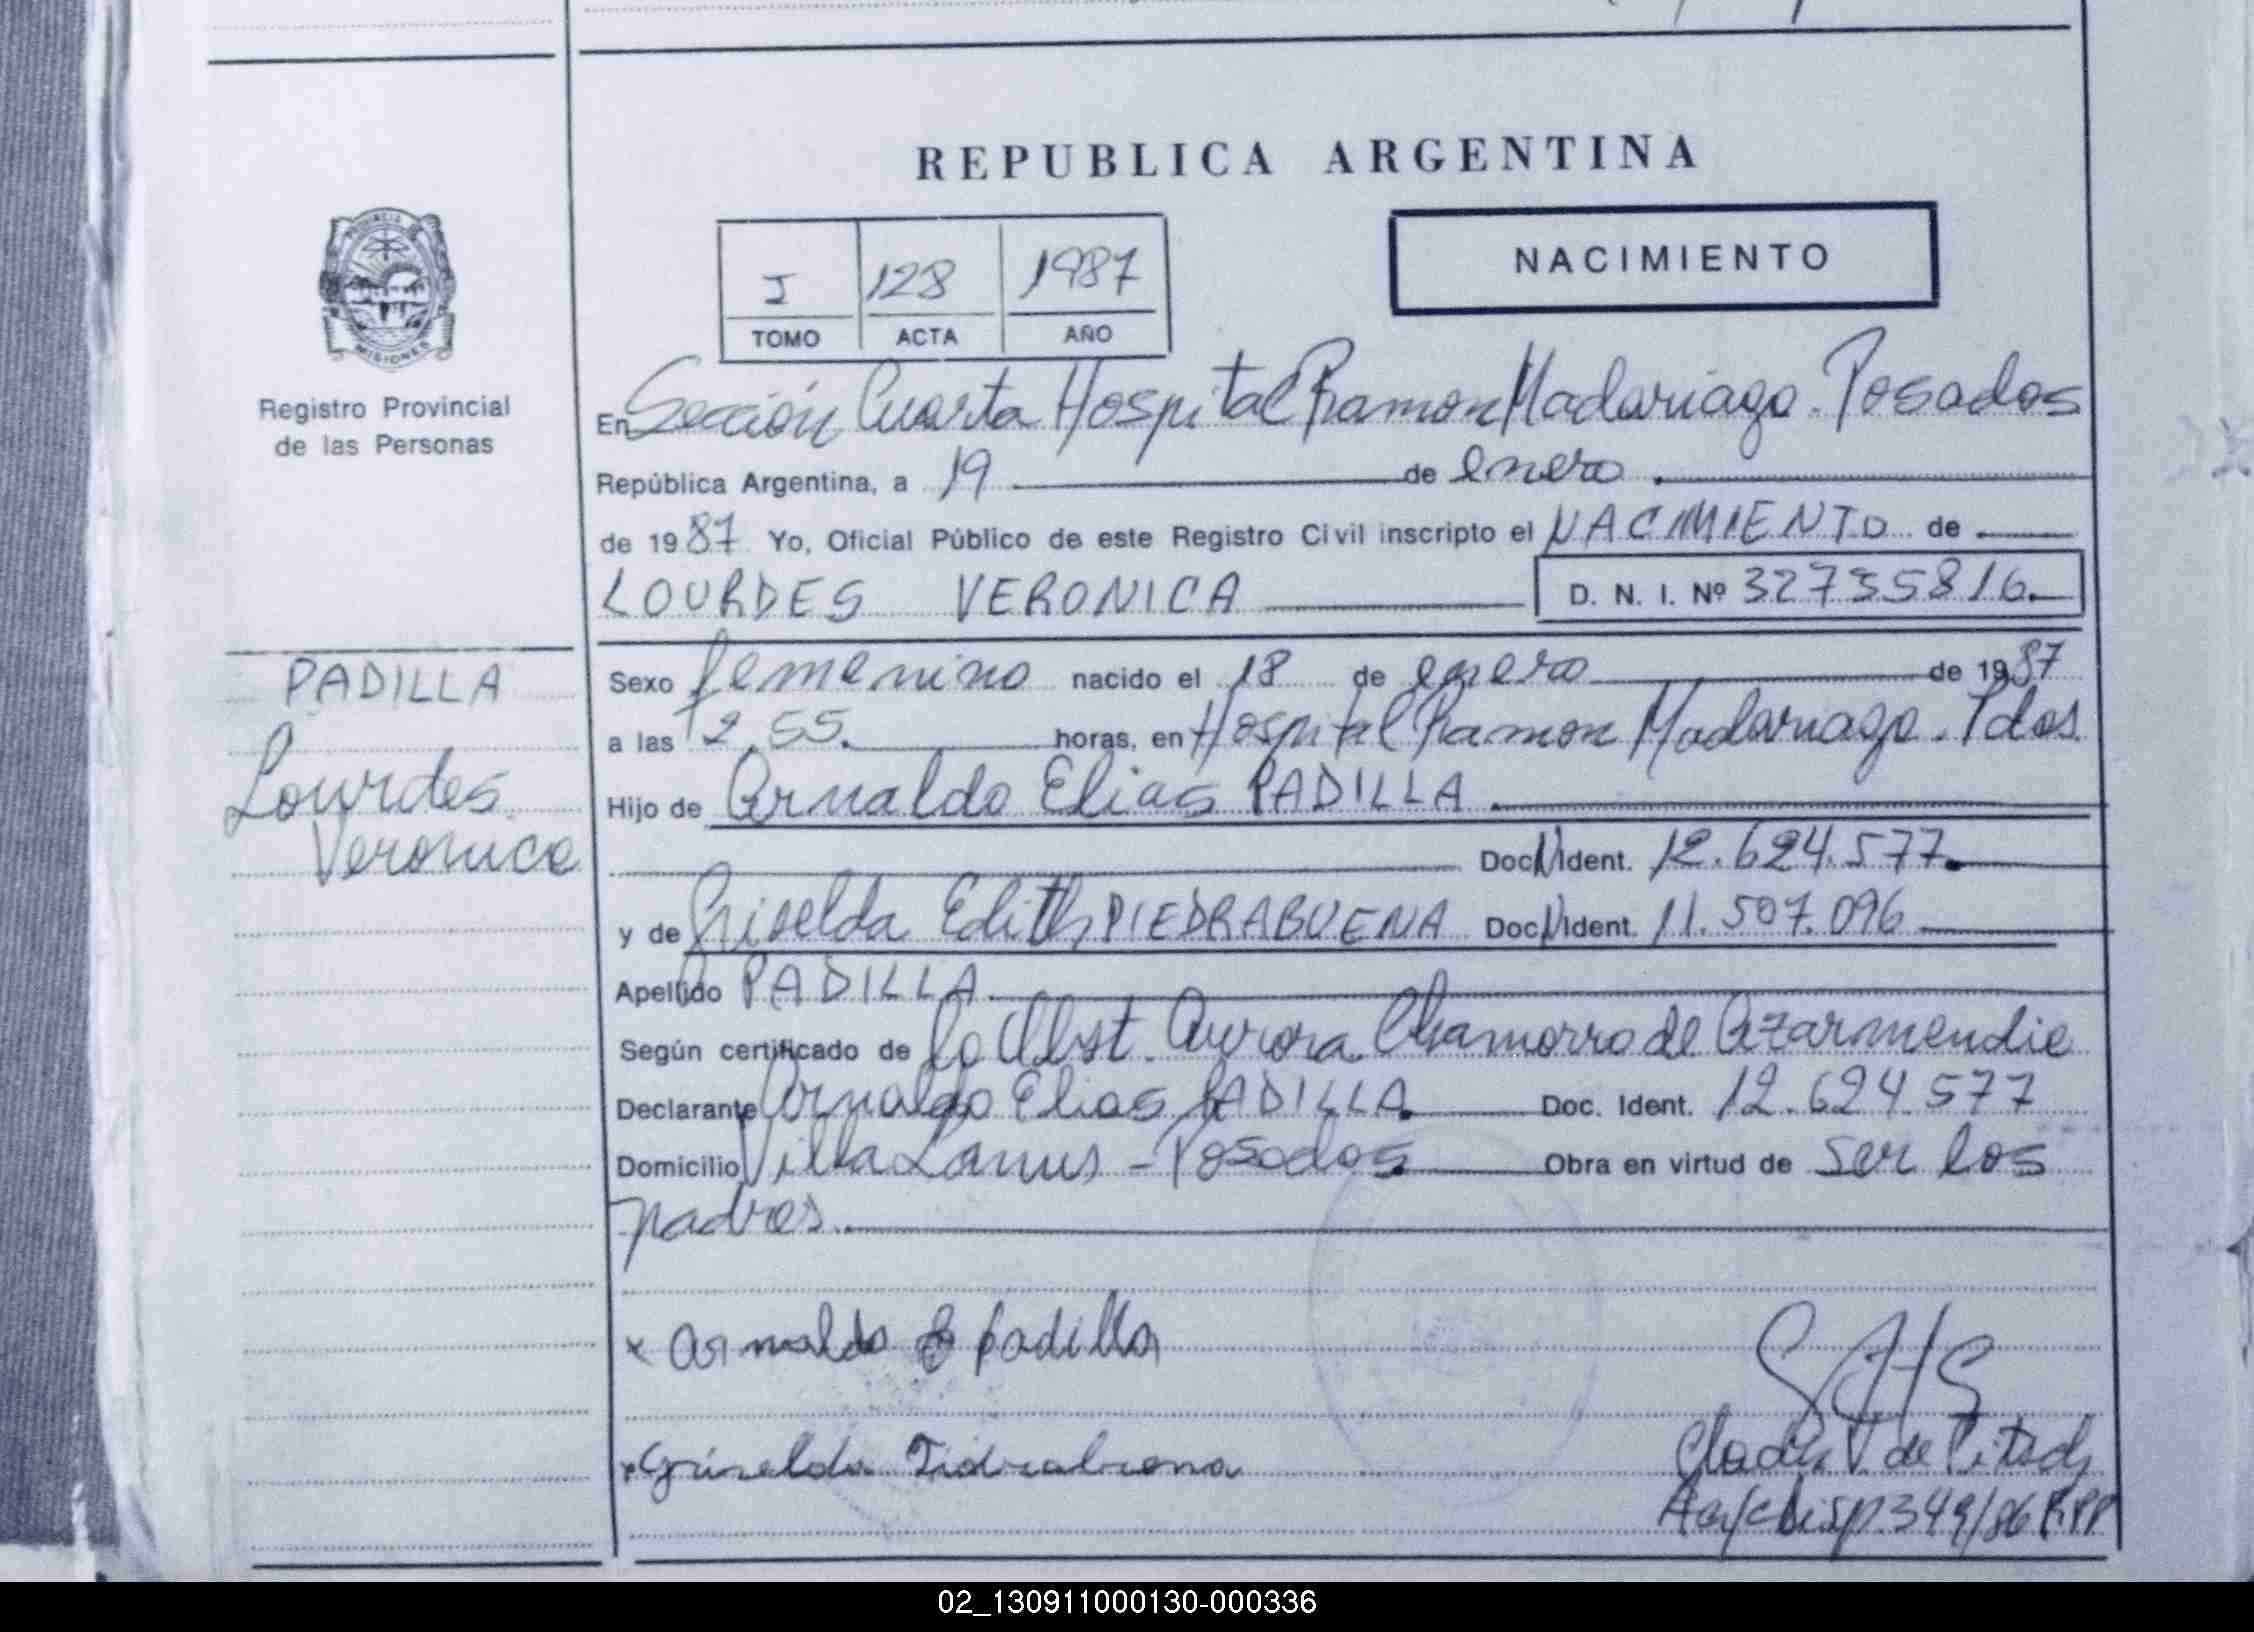 REPUBLICA ARGENTINA
PROVINCIA DE
MISIONES
Registro Provincial
de las Personas
NACIMIENTO
I 128 1987
TOMO ACTA AÑO
En Sección Cuarta Hospital Ramon Madariaga. Posadas
República Argentina, a 19 de enero.
de 1987 Yo, Oficial Público de este Registro Civil inscripto el NACIMIENTO de
LOURDES VERONICA D. N. I. Nº 32735816.
PADILLA
Lourdes
Veronica
Sexo femenino nacido el 18 de enero de 1987
a las 12,55. horas, en Hospital Ramon Madariaga. Pdas.
Hijo de Arnaldo Elias PADILLA.
Doc. N. Ident. 12.624.577.
y de Griselda Edith PIEDRABUENA Doc. N. Ident. 11.507.096
Apellido PADILLA.
Según certificado de la Obst. Aurora Chamorro de Azarmendia
Declarante Arnaldo Elias PADILLA. Doc. Ident. 12.624.577
Domicilio Villa Lanus - Posadas Obra en virtud de ser los
padres.
x Arnaldo E Padilla
x Griselda
de
349/86 RPP
02_130911000130-000336